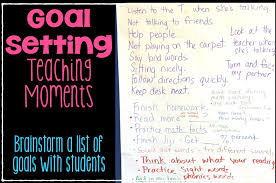 GOAL
Setting
Teaching
Moments
Brainstorm a list of
goals with students
Listen to the T. when she's talking.
Not talking to friends.
Help people.
Not playing on the carpet.
Say kind words.
Sitting nicely.
Follow directions quickly.
Keep desk neat.
Look at the
teacher when
she's talking.
Turn and face
my partner.
Finish homework.
Read more
Practice math facts
Finish Jiji - Get
percent
Sound out words - try different sounds
• Think about what your reading.
• Practice Sight words
phonics words